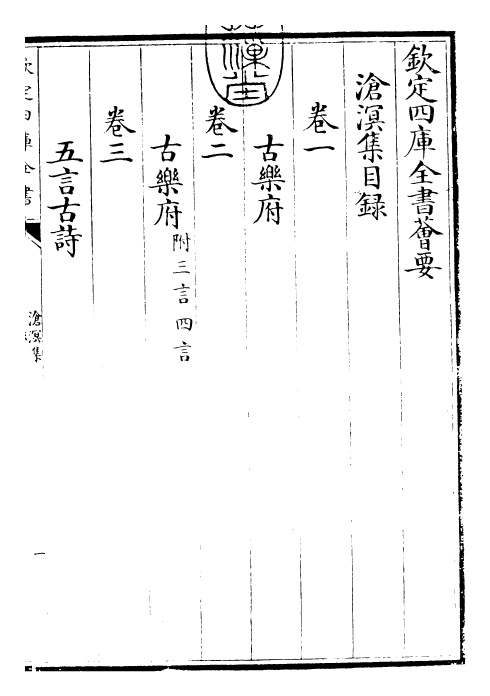 欽定四庫全書薈要
滄溟集目録
卷一
古樂府
卷二
古樂府附三言四言
卷三
五言古詩
欽定四庫全書
滄溟集
一